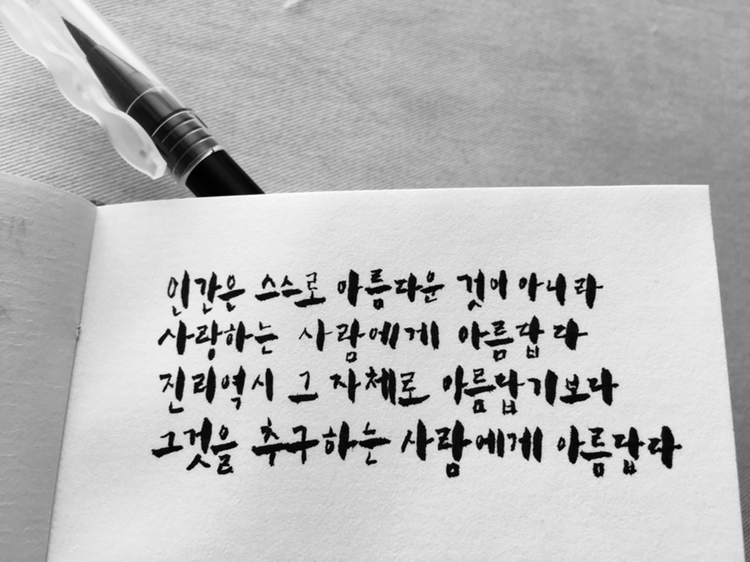 인간은 스스로 아름다운 것이 아니라
사랑하는 사람에게 아름답다
진리역시 그 자체로 아름답기보다
그것을 추구하는 사람에게 아름답다